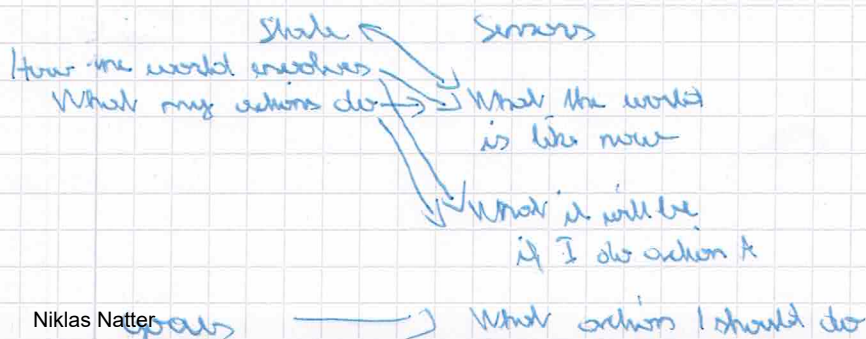 State Sensors
How the world evolves
What my actions do What the world
is like now
What it will be
if I do action A
Niklas Natter
Goals What action I should do